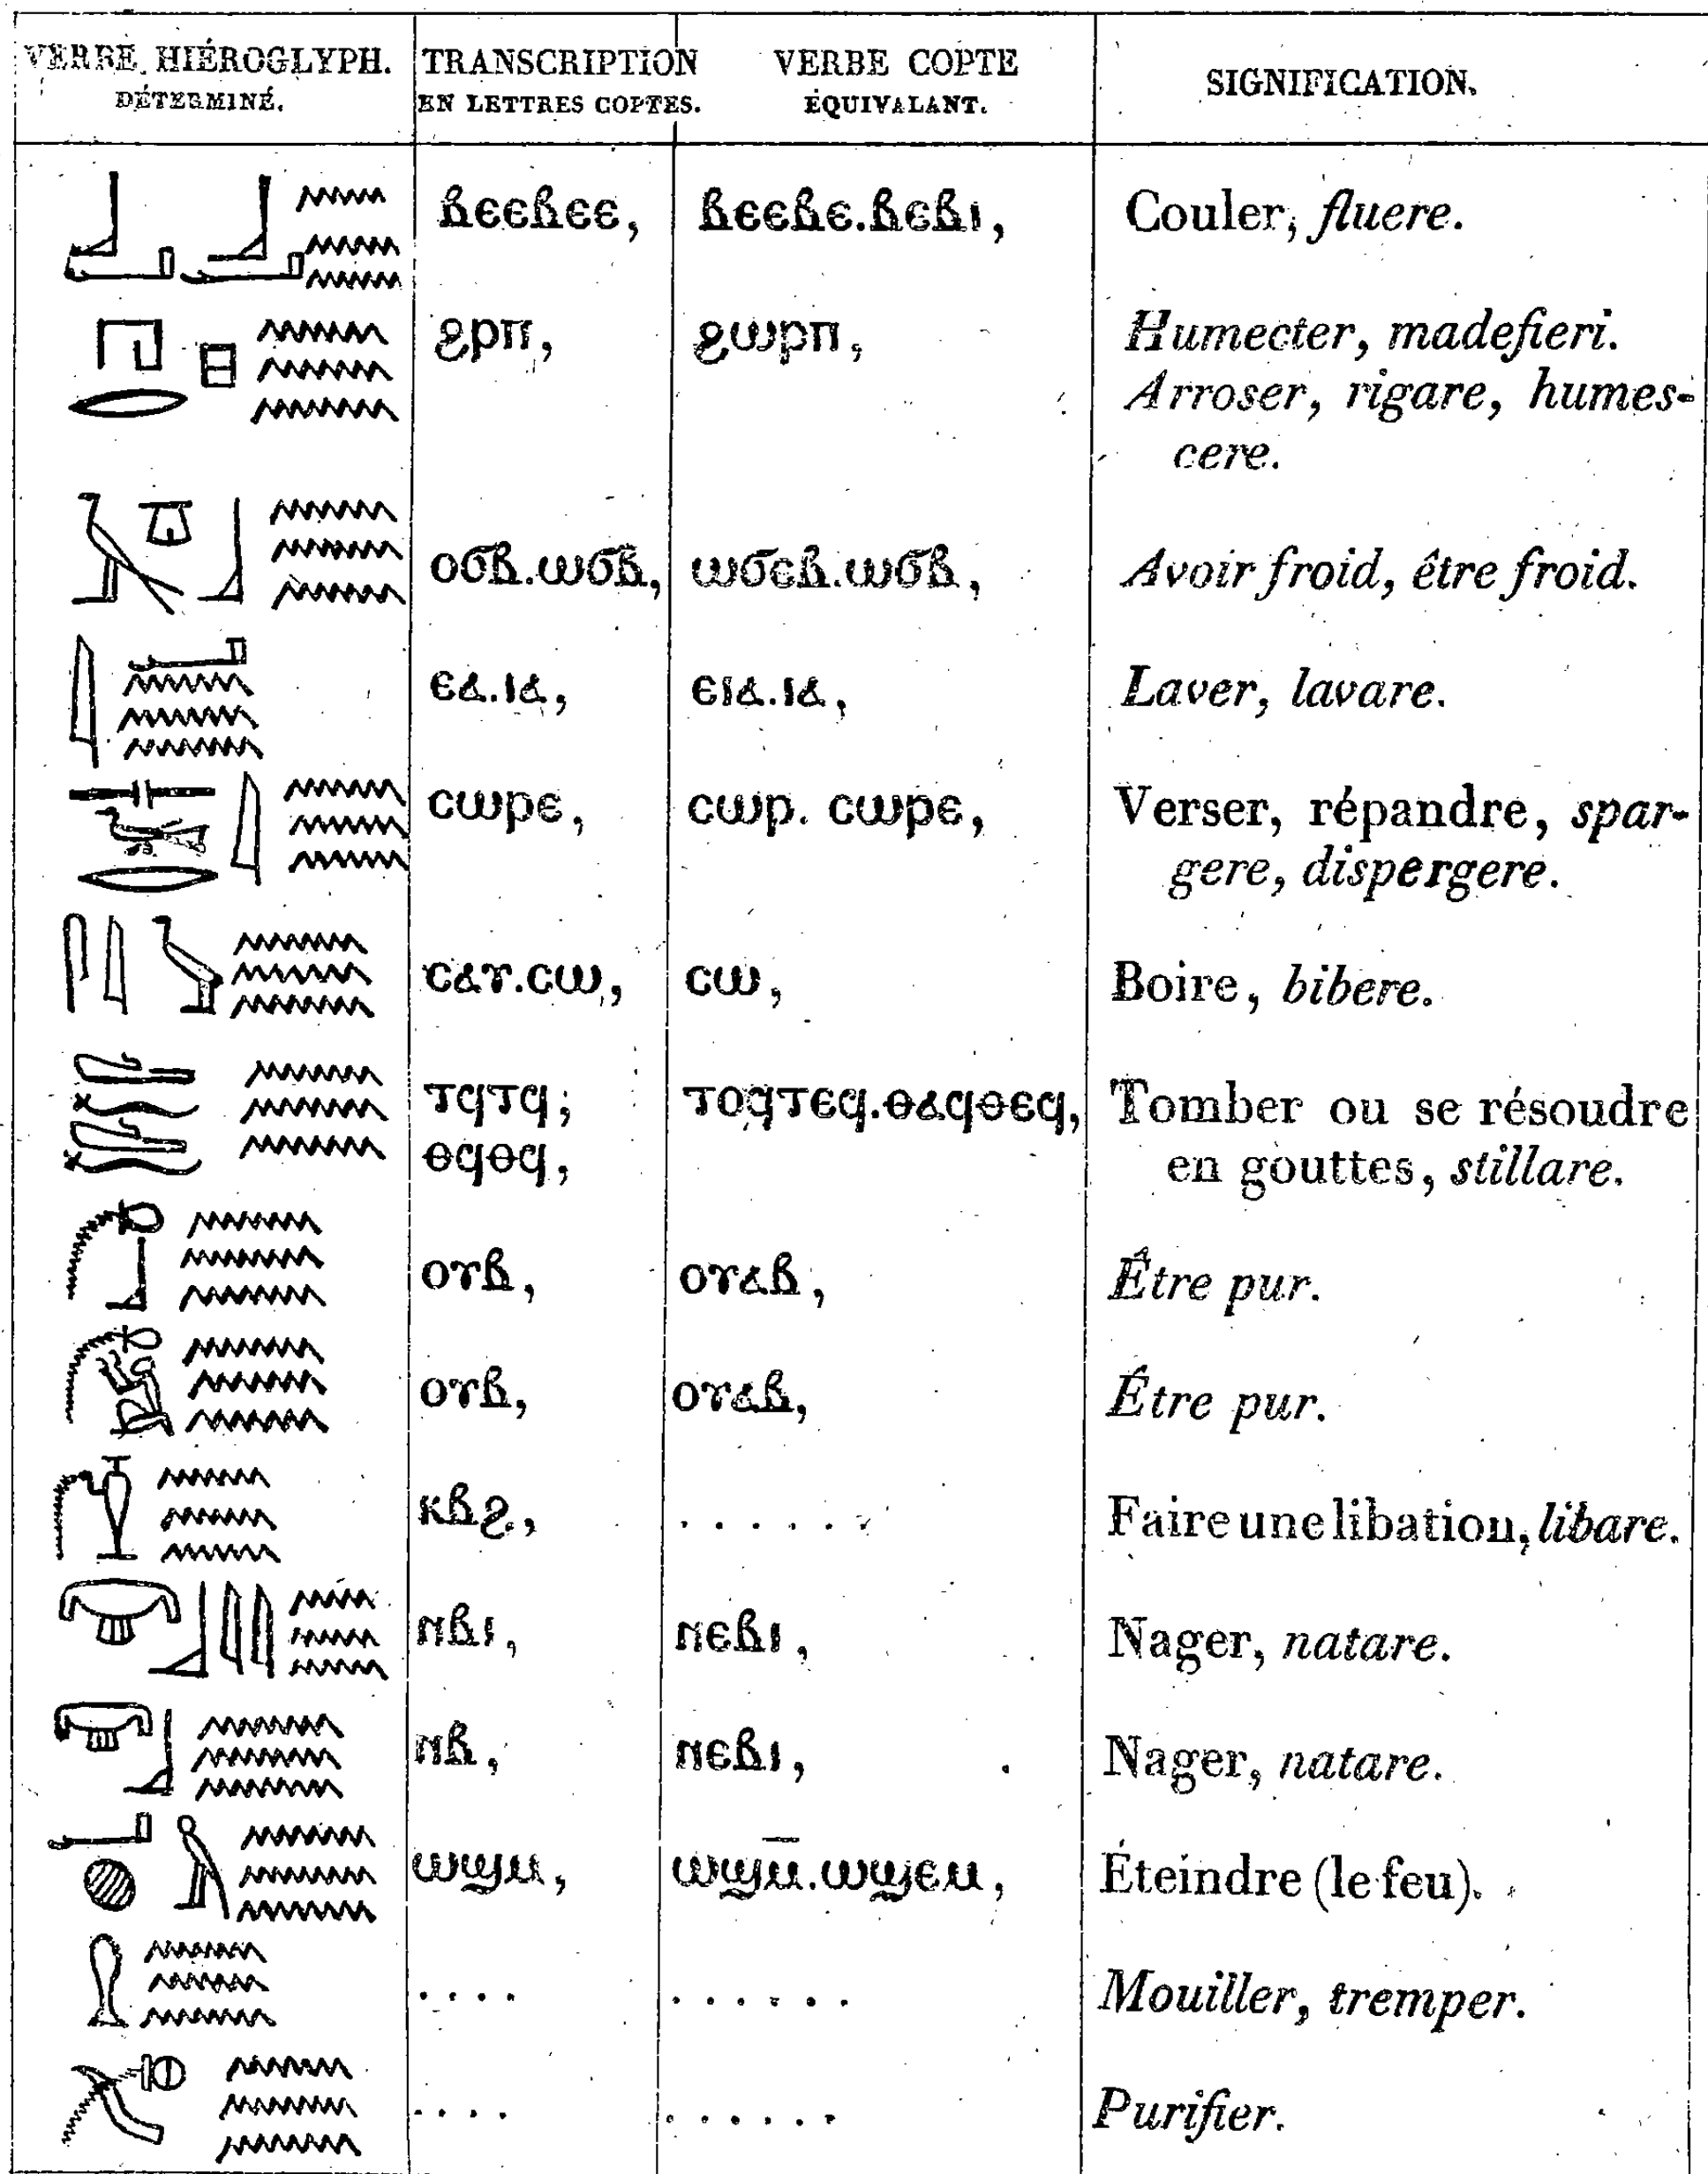 VERBE HIÉROGLYPH. TRANSCRIPTION VERBE COPTE SIGNIFICATION.
DÉTERMINÉ. EN LETTRES COPTES. ÉQUIVALANT.
ⲃⲉⲉⲃⲉⲉ, ⲃⲉⲉⲃⲉ.ⲃⲉⲃⲓ, Couler, fluere.
ϩⲣⲡ, ϩⲱⲣⲡ, Humecter, madefieri.
Arroser, rigare, humes-
cere.
ⲟϭⲃ.ⲱϭⲃ, ⲱϭⲉⲃ.ⲱϭⲃ, Avoir froid, être froid.
ⲉⲁ.ⲓⲁ, ⲉⲓⲁ.ⲓⲁ, Laver, lavare.
ⲥⲱⲣⲉ, ⲥⲱⲣ. ⲥⲱⲣⲉ, Verser, répandre, spar-
gere, dispergere.
ⲥⲁⲩ.ⲥⲱ, ⲥⲱ, Boire, bibere.
ⲧϥⲧϥ; ⲧⲟϥⲧⲉϥ.ⲑⲁϥⲑⲉϥ, Tomber ou se résoudre
ⲑϥⲑϥ, en gouttes, stillare.
ⲟⲩⲃ, ⲟⲩⲁⲃ, Être pur.
ⲟⲩⲃ, ⲟⲩⲁⲃ, Être pur.
ⲕⲃϩ, . . . . . . Faire une libation, libare.
ⲛⲃⲓ, ⲛⲉⲃⲓ, Nager, natare.
ⲛⲃ, ⲛⲉⲃⲓ, Nager, natare.
ⲱϣⲙ, ⲱϣⲙ̅.ⲱϣⲉⲙ, Éteindre (le feu).
. . . . . . . . . . Mouiller, tremper.
. . . . . . . . . . Purifier.